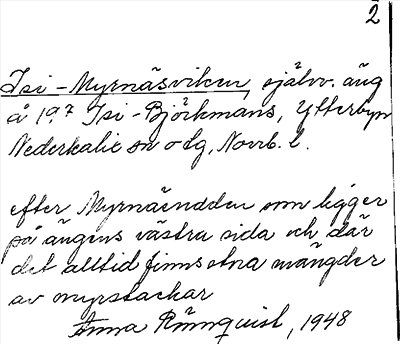 2
Isi-Myrnäsviken, självv. äng
å 19:7 Isi-Björkmans, Ytterbyn
Nederkalix sn o tg, Norrb. l.
efter Myrnäendden som ligger
på ängens västra sida och där
det alltid finns stora mängder
av myrstackar
Anna Rönnquist, 1948